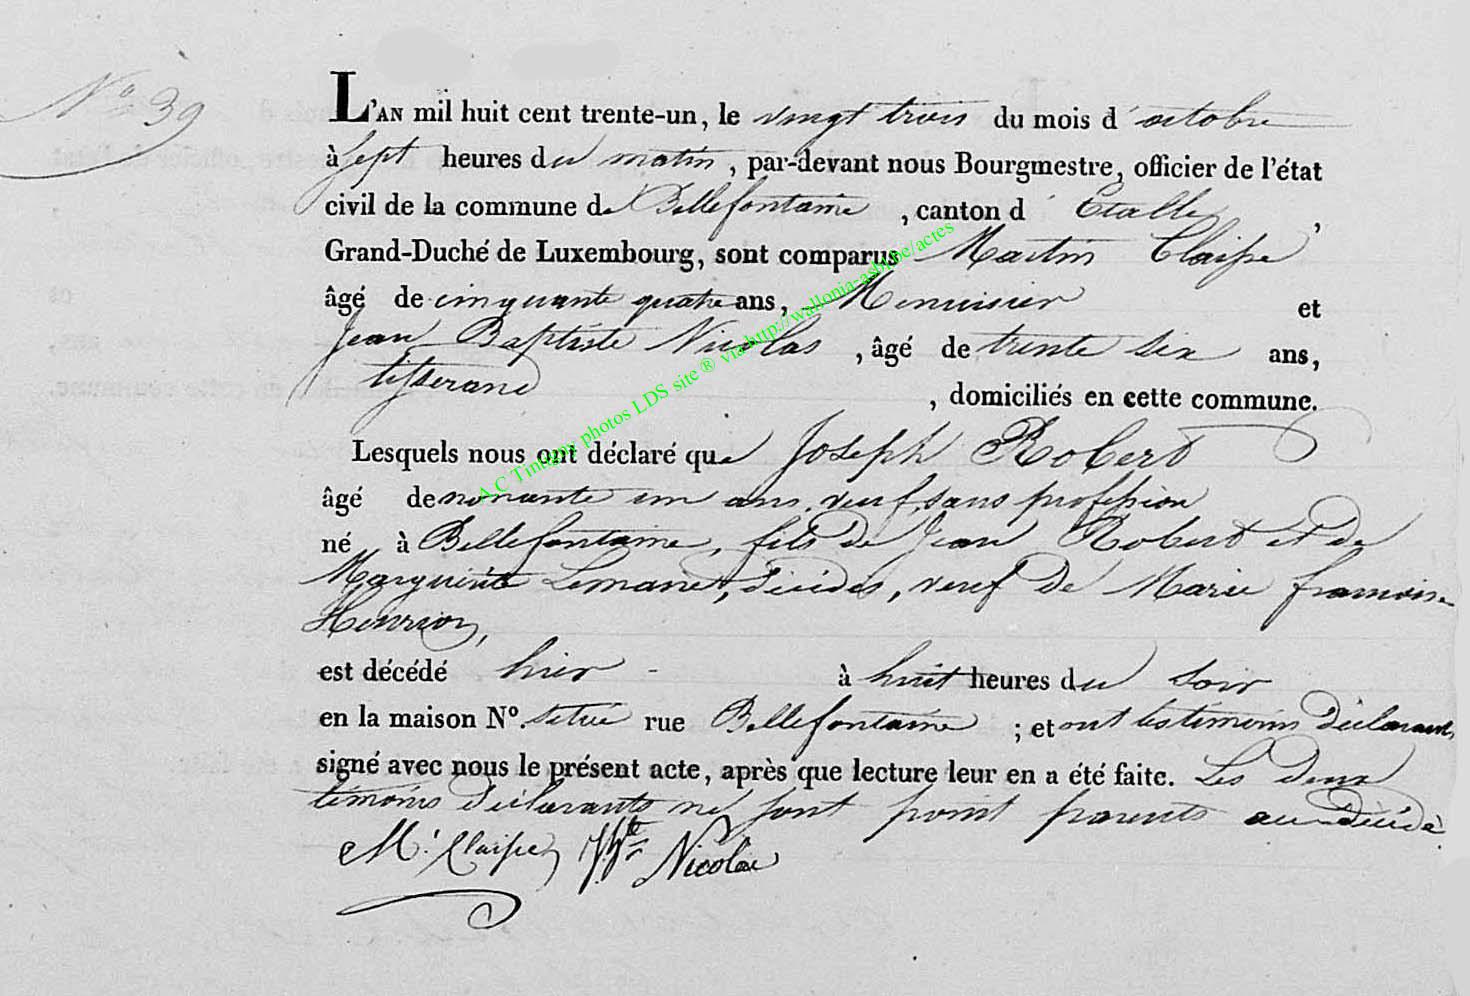 No 39
L'AN mil huit cent trente-un, le vingt trois du mois d'octobre
à sept heures du matin, par-devant nous Bourgmestre, officier de l'état
civil de la commune de Bellefontaine, canton d'Etalle,
Grand-Duché de Luxembourg, sont comparus Martin Claisse
âgé de cinquante quatre ans, Menuisier et
Jean Baptiste Nicolas, âgé de trente six ans,
tisserand, domiciliés en cette commune.
Lesquels nous ont déclaré que Joseph Robert
âgé de nonante un ans, veuf, sans profession
né à Bellefontaine, fils de Jean Robert et de
Marguerite Lemane, décédés, veuf de Marie francoise
Henrion,
est décédé hier - à huit heures du soir
en la maison No. située rue Bellefontaine ; et ont les témoins déclarants
signé avec nous le présent acte, après que lecture leur en a été faite. Les deux
témoins déclarants ne sont point parents au décédé
M. Claisse Nicolas
A.C Tintigny photos LDS site ® via http://wallonia-asbl.be/actes